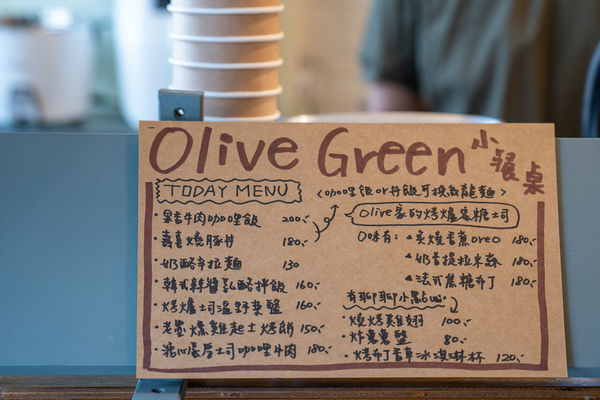 Olive Green 小餐桌
TODAY MENU
<咖哩飯or丼飯可換成龍麵>
牛肉咖哩飯 200.-
壽喜燒豚丼 180.-
奶酪辛拉麵 130
韓式炸醬乳酪拌飯 160.-
烤爐吐司溫野菜盤 160.-
老墨燻雞起士烤餅 150.-
糖心蛋厚土司咖哩牛肉 180.-
Olive家的烤爐蜜糖土司
口味有:
炙燒香蕉oreo 180.-
奶香提拉米蘇 180.-
法式焦糖布丁 180.-
有聊聊小點心
燒烤雞翅 100.-
炸 盤 80.-
烤布丁香草冰淇淋杯 120.-